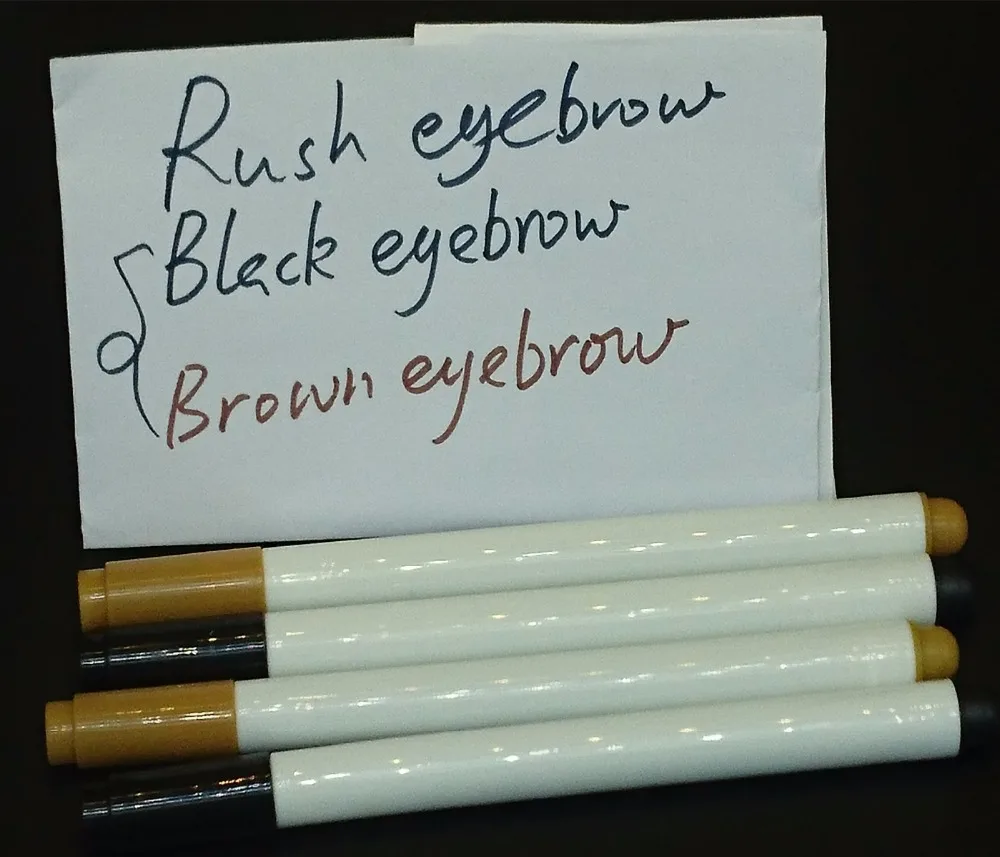 Rush eyebrow
Black eyebrow
Brown eyebrow